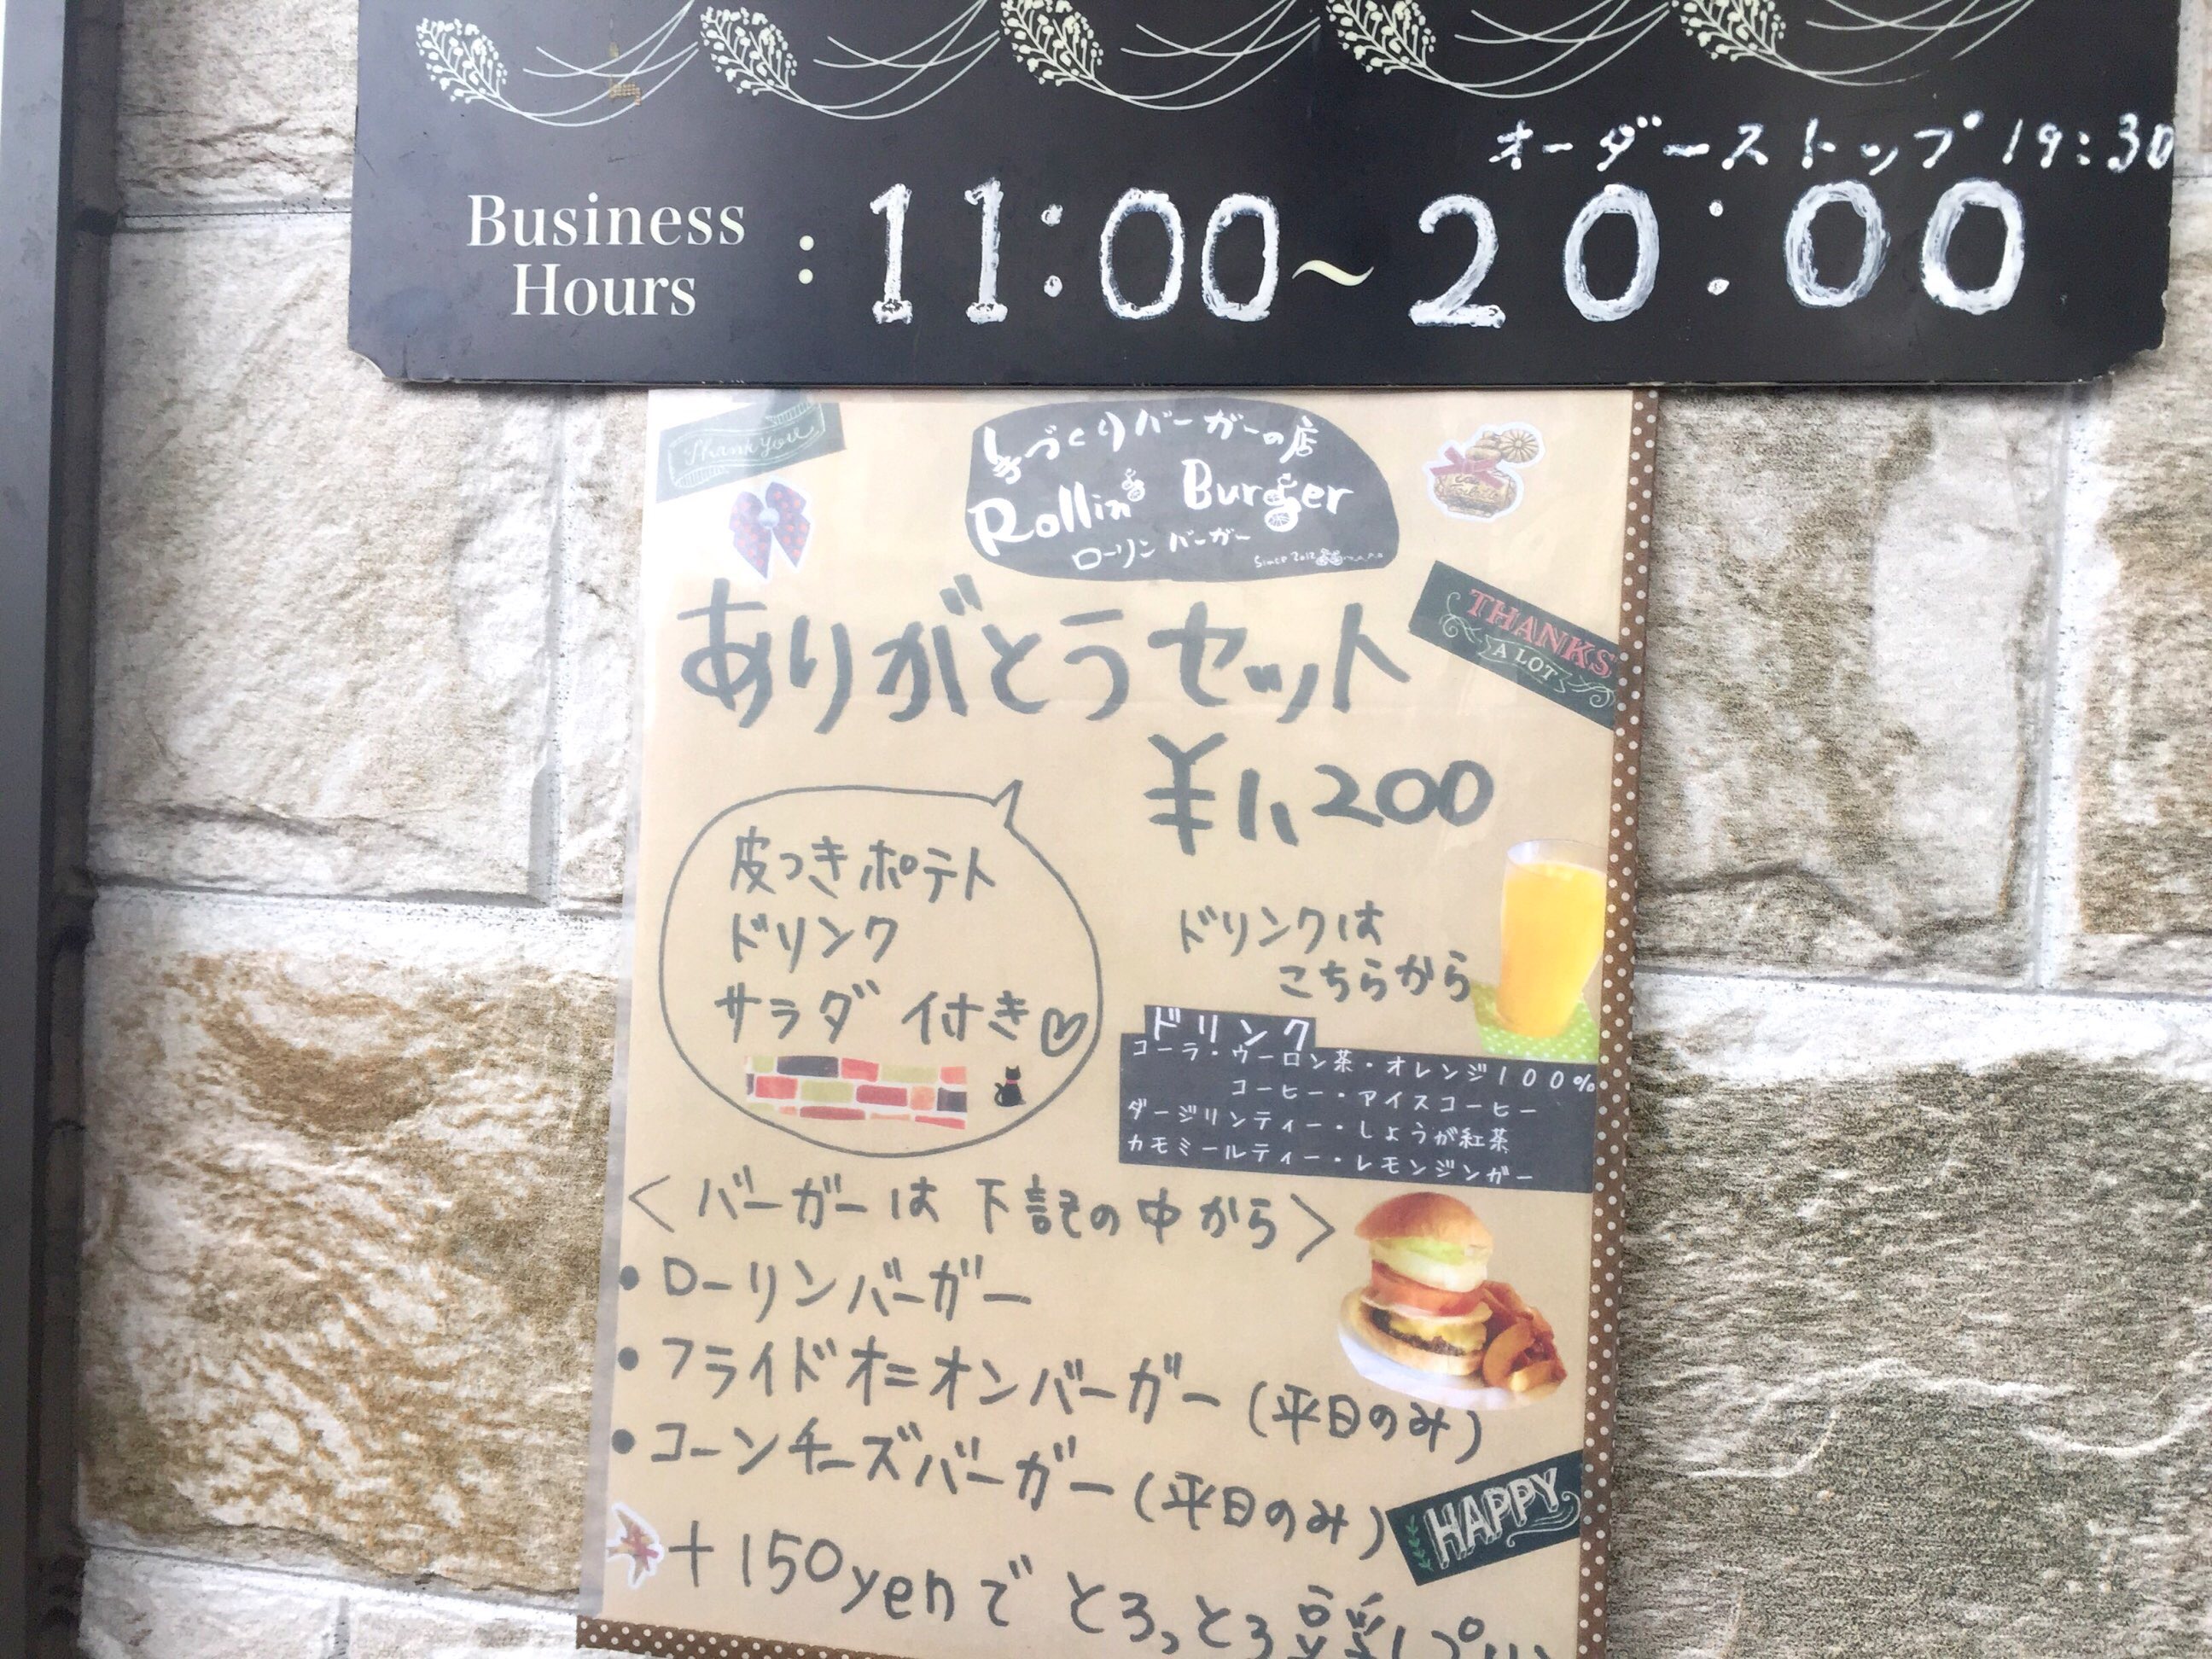 オーダーストップ 19:30
Business Hours : 11:00~20:00
Thank you
手づくりバーガーの店
Rollin' Burger
ローリン バーガー
Since 2012
ありがとうセット
THANKS
A LOT
¥1,200
皮つきポテト
ドリンク
サラダ 付き♡
ドリンクは
こちらから
ドリンク
コーラ・ウーロン茶・オレンジ100%
コーヒー・アイスコーヒー
ダージリンティー・しょうが紅茶
カモミールティー・レモンジンガー
<バーガーは 下記の中から>
・ローリンバーガー
・フライドオニオンバーガー(平日のみ)
・コーンチーズバーガー(平日のみ)
HAPPY
+150yenで とろっとろ豆乳プリン